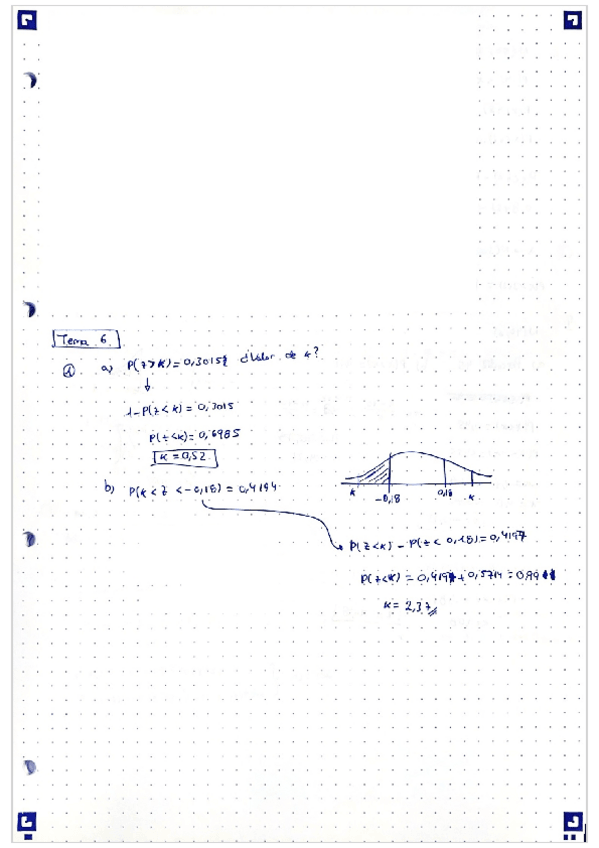 Tema 6.
① a) P(z>k)=0,3015 ¿Valor de k?
1-P(z<k) = 0,3015
P(z<k)= 0,6985
k = 0,52
b) P(k<z<-0,18) = 0,4194
k -0,18 0,18 k
P(z<k) - P(z< 0,18)=0,4197
P(z<k) = 0,4197+ 0,5714 = 0,99
k= 2,37